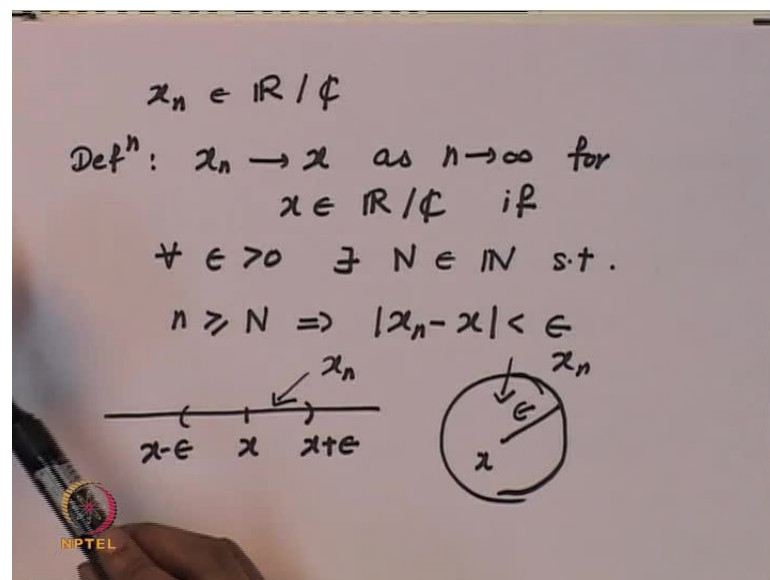 xₙ ∈ ℝ / ₵
Defⁿ: xₙ → x as n → ∞ for
x ∈ ℝ / ₵ if
∀ ∈ > 0 ∃ N ∈ ℕ s.t.
n ≥ N => |xₙ - x| < ∈
xₙ
x-∈ x x+∈
xₙ
∈
x
NPTEL